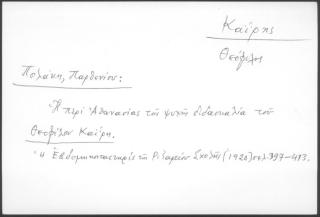 Καΐρης
Θεόφιλος
Πολάκη, Παρθενίου:
Ἡ περὶ Ἀθανασίας τῆς ψυχῆς διδασκαλία τοῦ
Θεοφίλου Καΐρη.
Ἡ Ἑβδομηκονταετηρὶς τῆς Ριζαρείου Σχολῆς (1920) σελ. 397-413.